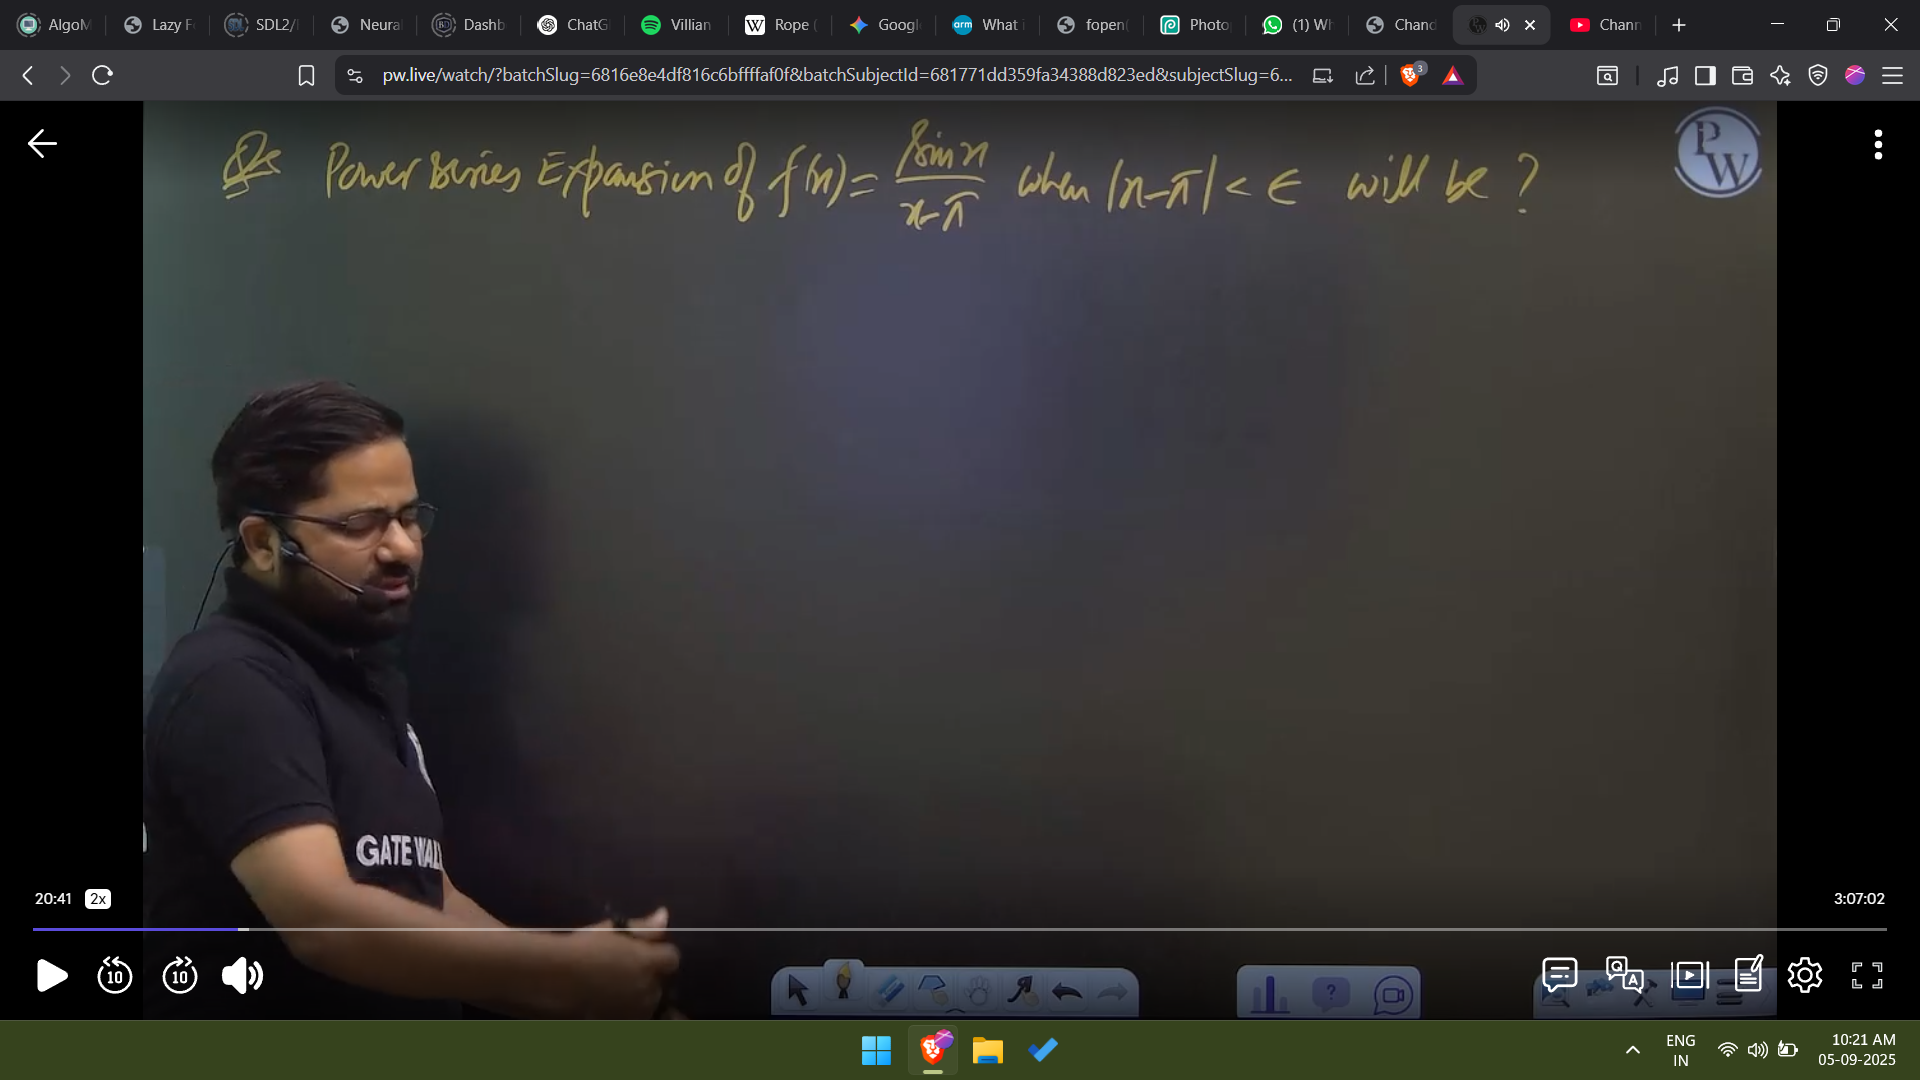 AlgoM
Lazy F
SDL2/I
Neural
Dashb
ChatG
Villian
Rope (
Googl
arm What i
fopen(
Photo
(1) Wh
Chand
Chann
pw.live/watch/?batchSlug=6816e8e4df816c6bffffaf0f&batchSubjectId=681771dd359fa34388d823ed&subjectSlug=6...
3
Qs Power Series Expansion of f(x) = sin x / x-π when |x-π| < ϵ will be ?
PW
GATE WAL
20:41 2x
3:07:02
10 10
Q A
?
ENG
IN
10:21 AM
05-09-2025